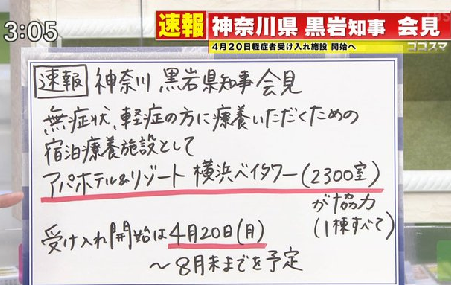 3:05
速報 神奈川県 黒岩知事 会見
4月20日軽症者受け入れ施設 開始へ
ココスマ
速報 神奈川 黒岩県知事 会見
無症状、軽症の方に療養いただくための
宿泊療養施設として
アパホテル&リゾート 横浜ベイタワー(2300室)
が協力
(1棟すべて)
受け入れ開始は4月20日(月)
〜8月末までを予定